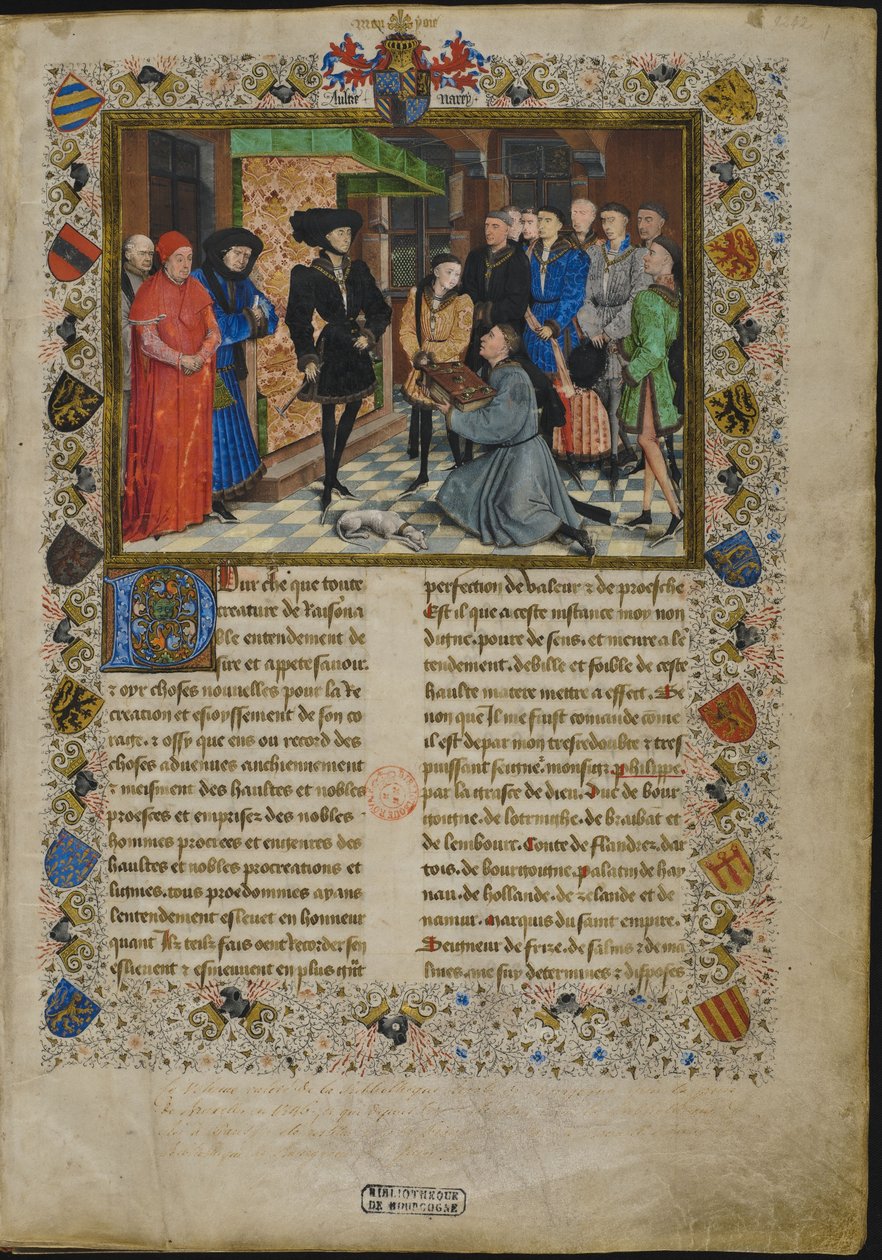 Mon Joie
Aultre Naray
Pour che que toute
creature de Raisona
ble entendement de
sire et appete sauoir
& oyr choses nouuelles pour la Re
creation et esioyssement de son co
rage. & ossy que ens ou record des
choses aduenues anchiennement
& meisment des haultes et nobles
proesces et emprisez des nobles
hommes procrees et engenres des
haultes et nobles procreations et
lignies. tous proedommes ayans
lentendement esleuet en honneur
quant Ilz telz fais oent Recorder sen
eslieuent & esmeuuent en plus grãt
perfection de valeur & de proesche
Est il que a ceste instance moy non
digne. poure de sens. et menre a le
tendement. debille et foible de ceste
haulte matere mettre a effect. Se
non que Il me fuist comande come
il est de par mon tresredoubte & tres
puissant seigneʳ. monsigʳ. phelippe.
par la grasce de dieu. Duc de bour
goigne. de lotringhe. de braibãt et
de lembourc. Conte de flandrez. dar
tois. de bourgoingne. palatin de hay
nau. de hollande. de zelande et de
namur. Marquis du saint empire.
Seigneur de frize. de salins & de ma
lines. me suy determines & disposes
BIBLIOTHEQUE
DE BOURGOGNE